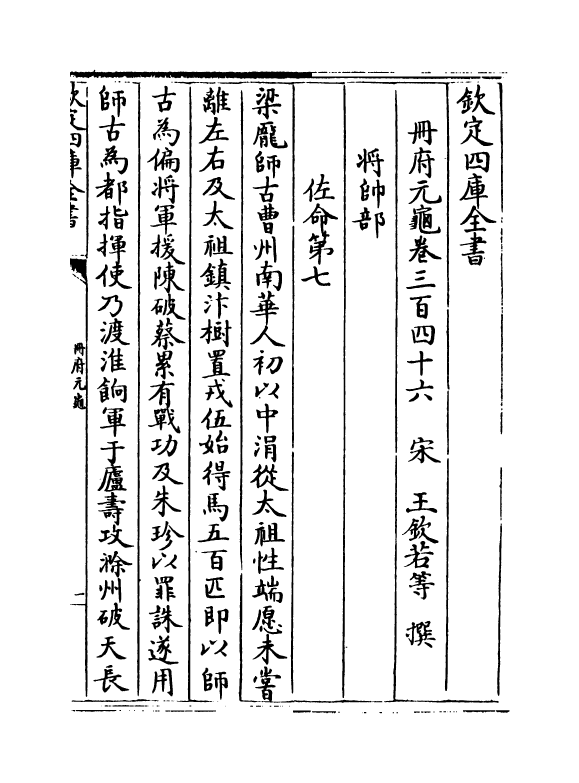 欽定四庫全書
冊府元龜卷三百四十六　宋　王欽若等　撰
將帥部
佐命第七
梁龎師古曹州南華人初以中涓從太祖性端愿未嘗
離左右及太祖鎮汴樹置戎伍始得馬五百匹即以師
古為偏將軍援陳破蔡累有戰功及朱珍以罪誅遂用
師古為都指揮使乃渡淮餉軍于廬壽攻滁州破天長
欽定四庫全書
冊府元龜
二